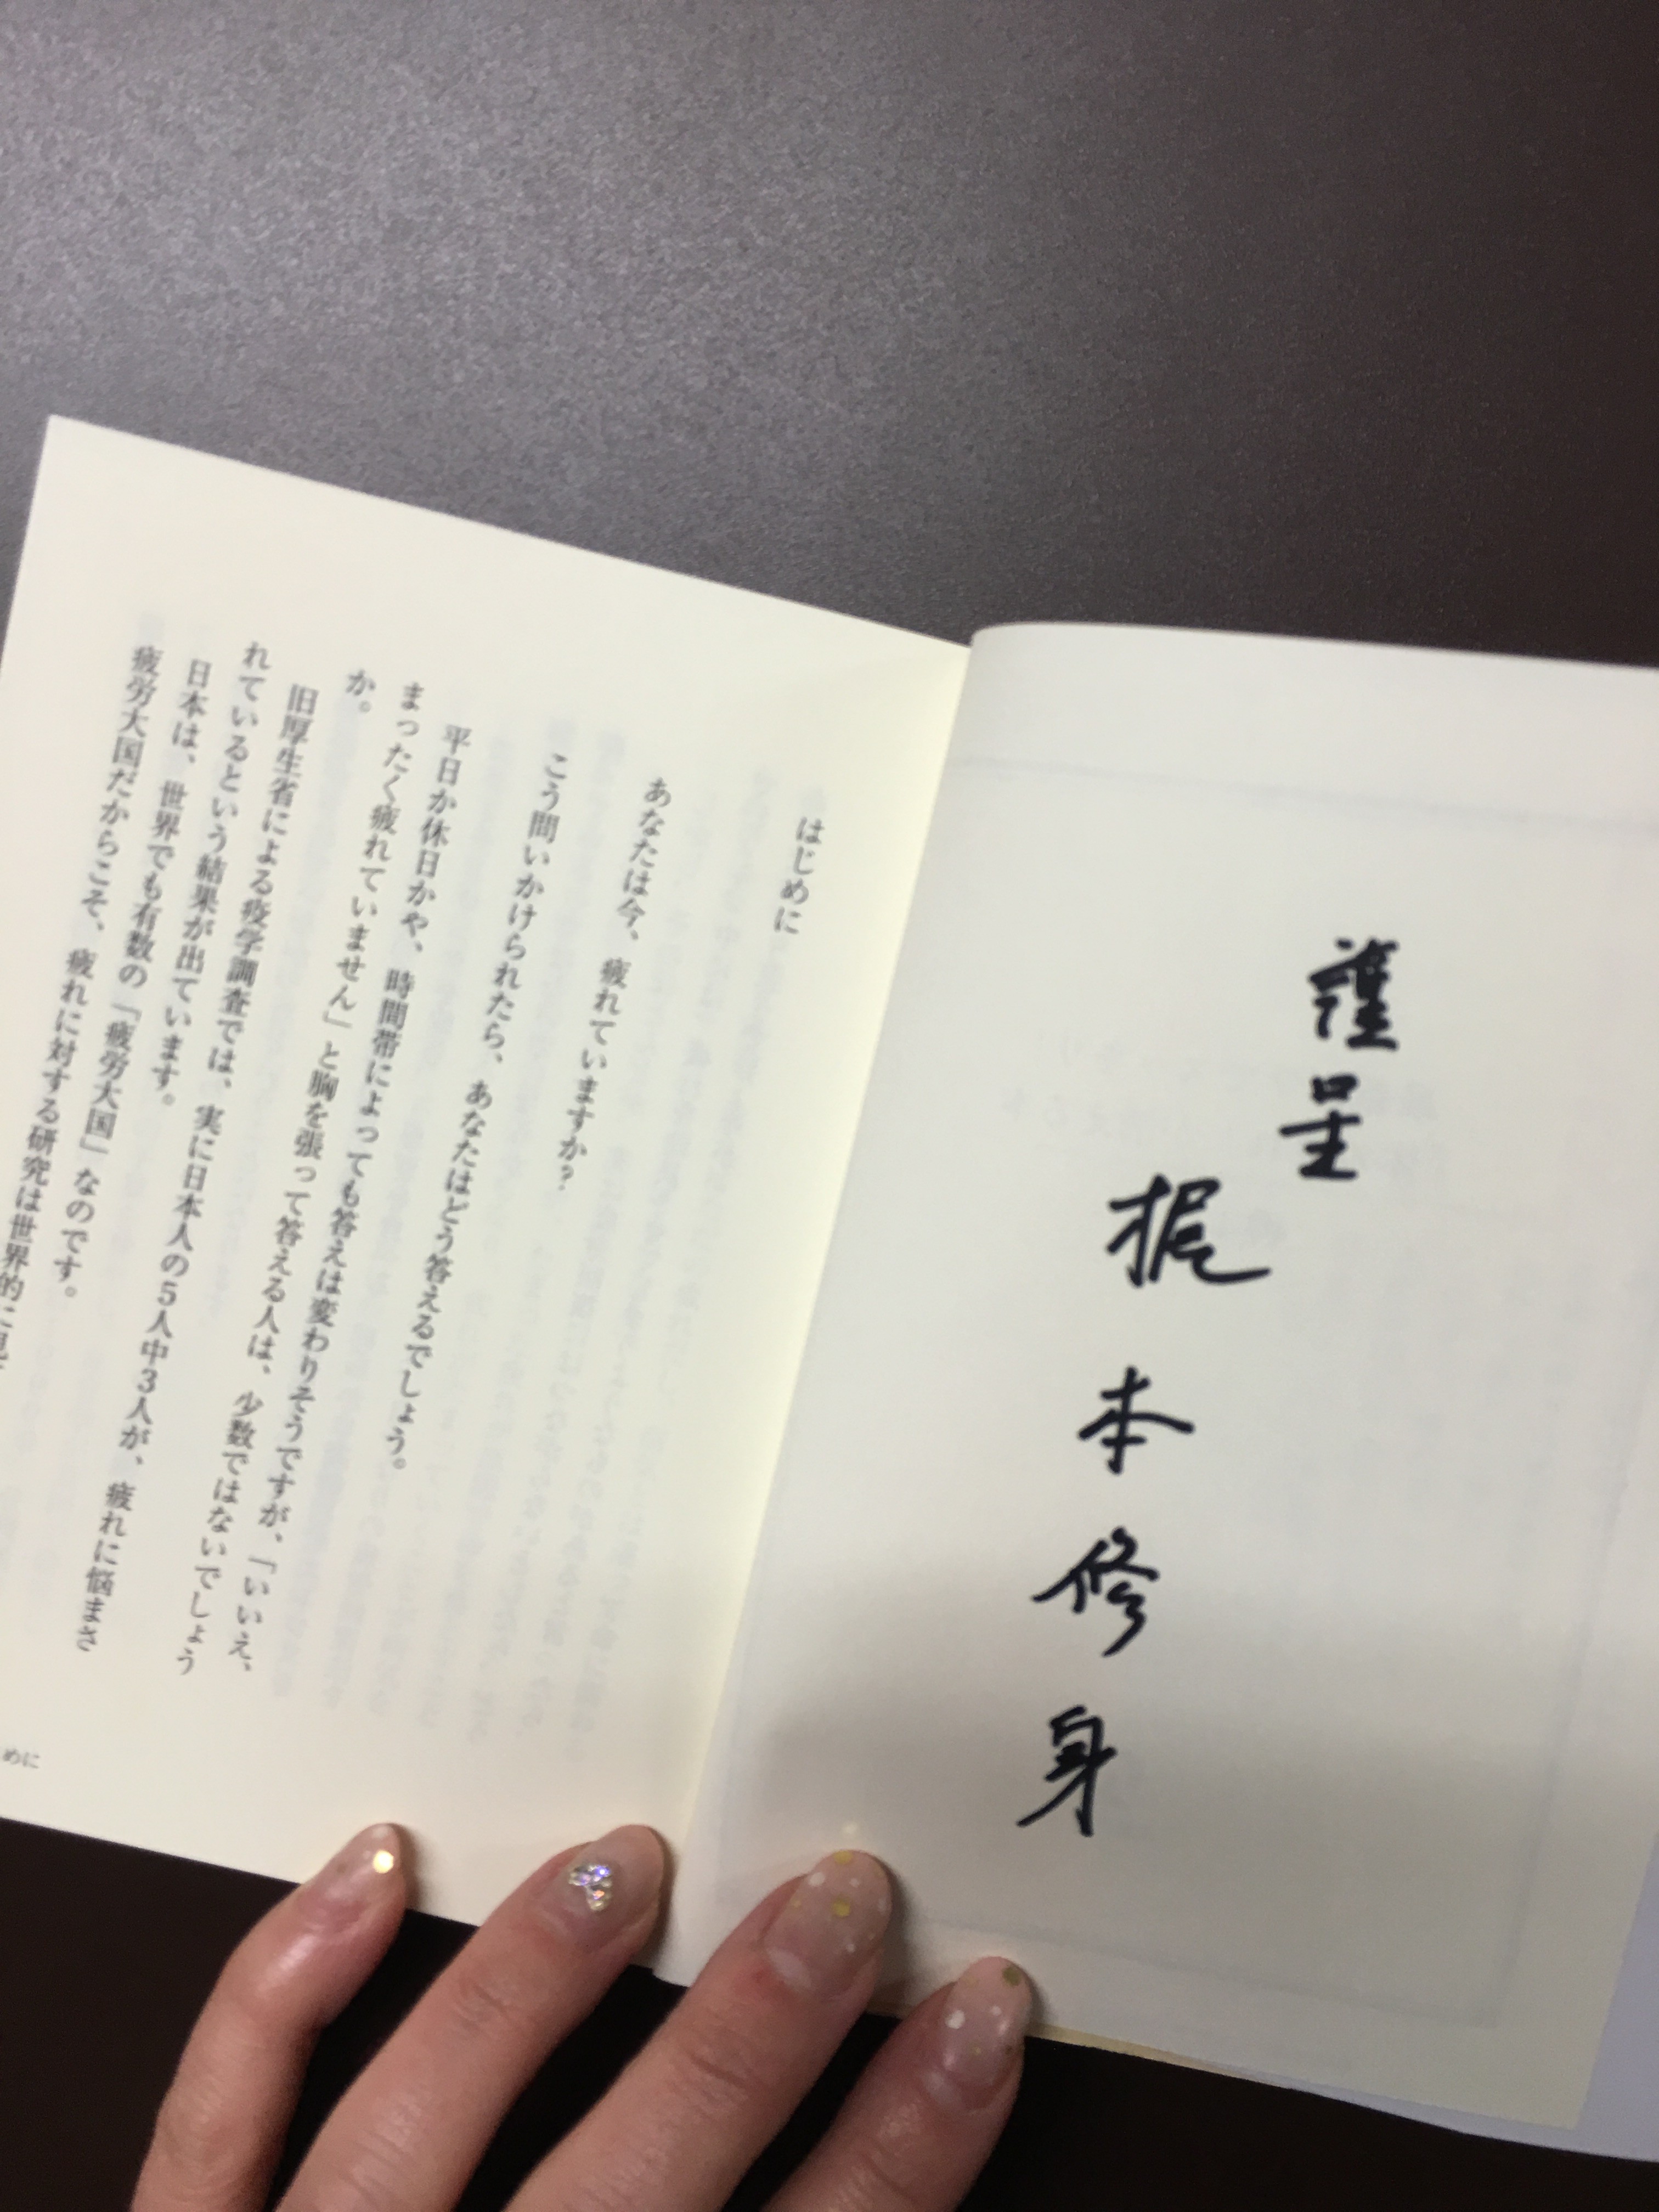 謹呈
梶本修身
はじめに
あなたは今、疲れていますか?
こう問いかけられたら、あなたはどう答えるでしょう。
平日か休日かや、時間帯によっても答えは変わりそうですが、「いいえ、
まったく疲れていません」と胸を張って答える人は、少数ではないでしょう
か。
旧厚生省による疫学調査では、実に日本人の5人中3人が、疲れに悩まさ
れているという結果が出ています。
日本は、世界でも有数の「疲労大国」なのです。
疲労大国だからこそ、疲れに対する研究は世界的に見
めに